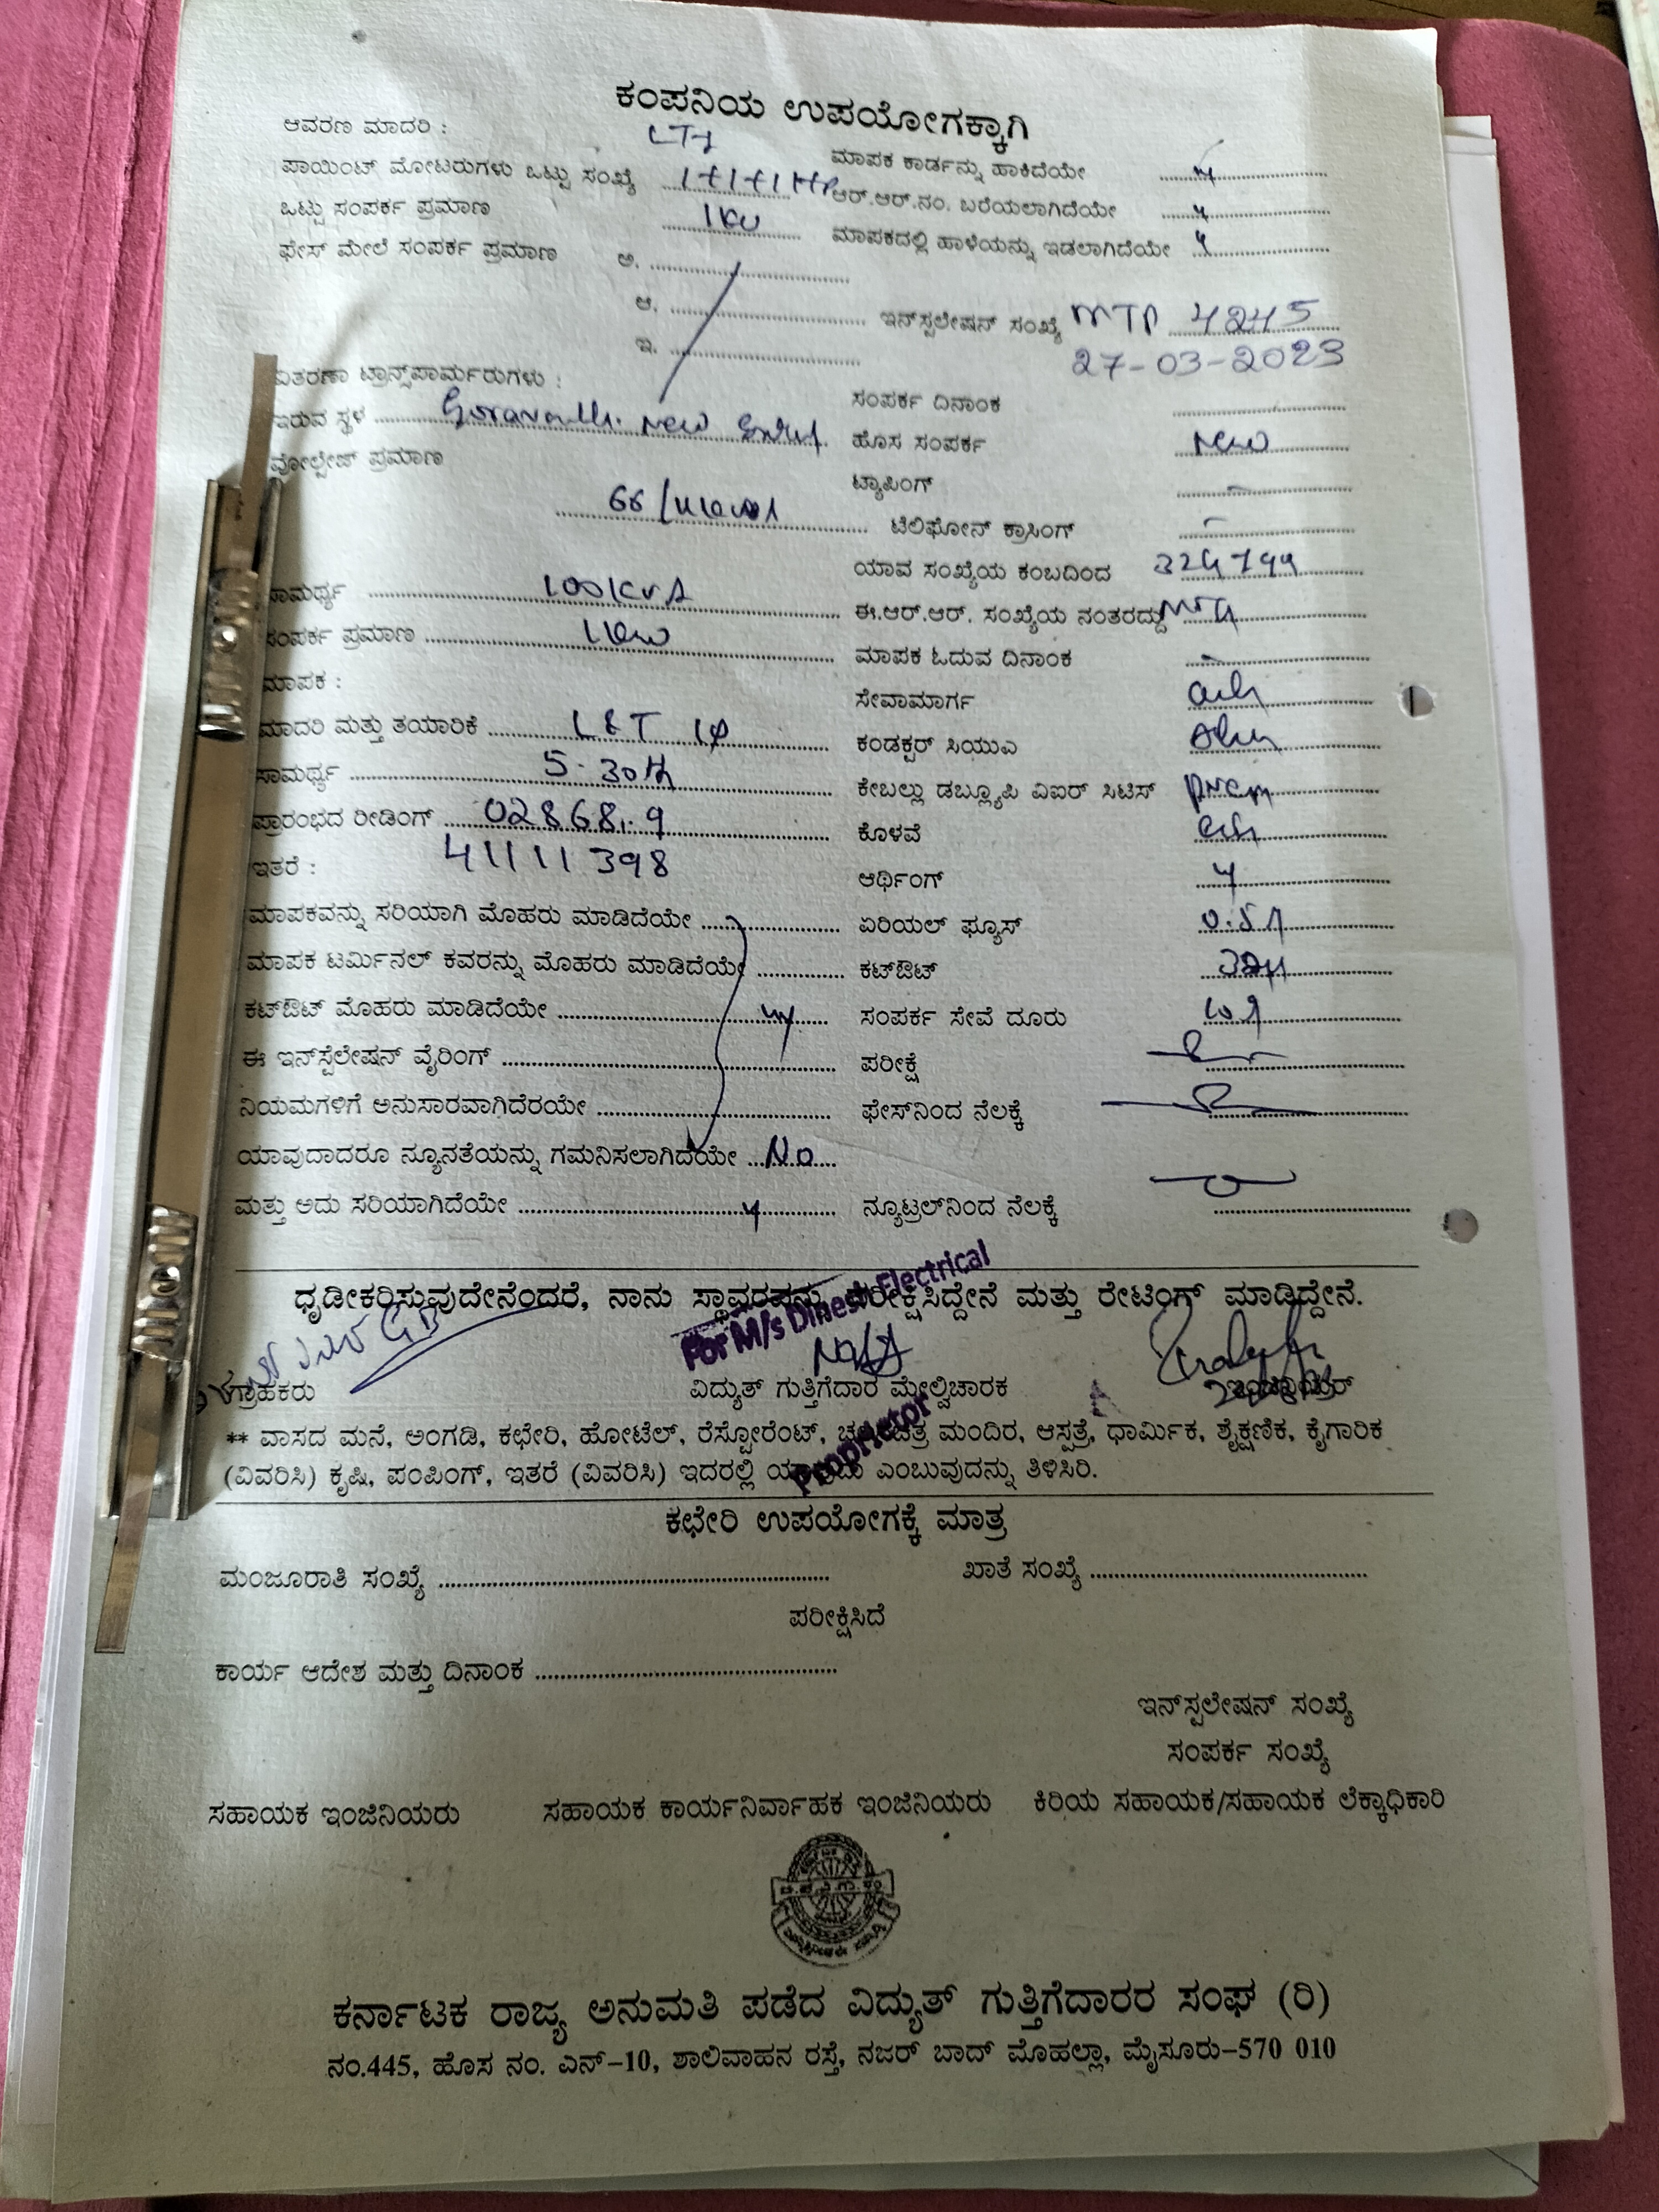 ಕಂಪನಿಯ ಉಪಯೋಗಕ್ಕಾಗಿ
ಆವರಣ ಮಾದರಿ :
ಪಾಯಿಂಟ್ ಮೋಟರುಗಳು ಒಟ್ಟು ಸಂಖ್ಯೆ 1+1+1 ಮಾಪಕ ಕಾರ್ಡನ್ನು ಹಾಕಿದೆಯೇ
ಒಟ್ಟು ಸಂಪರ್ಕ ಪ್ರಮಾಣ ಆರ್.ಆರ್.ನಂ. ಬರೆಯಲಾಗಿದೆಯೇ y
ಫೇಸ್ ಮೇಲೆ ಸಂಪರ್ಕ ಪ್ರಮಾಣ ಅ. ಮಾಪಕದಲ್ಲಿ ಹಾಳೆಯನ್ನು ಇಡಲಾಗಿದೆಯೇ y
ಆ. ಇನ್‌ಸ್ಪಲೇಷನ್ ಸಂಖ್ಯೆ MTP 4245
ಇ. 27-03-2023
ವಿತರಣಾ ಟ್ರಾನ್ಸ್‌ಪಾರ್ಮರುಗಳು :
ಇರುವ ಸ್ಥಳ ಸಂಪರ್ಕ ದಿನಾಂಕ
ವೋಲ್ಟೇಜ್ ಪ್ರಮಾಣ ಹೊಸ ಸಂಪರ್ಕ New
ಟ್ಯಾಪಿಂಗ್ –
ಟೆಲಿಫೋನ್ ಕ್ರಾಸಿಂಗ್ –
ಯಾವ ಸಂಖ್ಯೆಯ ಕಂಬದಿಂದ
ಸಾಮರ್ಥ್ಯ 100KVA ಈ.ಆರ್.ಆರ್. ಸಂಖ್ಯೆಯ ನಂತರದ್ದು
ಸಂಪರ್ಕ ಪ್ರಮಾಣ ಮಾಪಕ ಓದುವ ದಿನಾಂಕ –
ಮಾಪಕ : ಸೇವಾಮಾರ್ಗ
ಮಾದರಿ ಮತ್ತು ತಯಾರಿಕೆ L&T 1φ ಕಂಡಕ್ಟರ್ ಸಿಯುಎ
ಸಾಮರ್ಥ್ಯ 5-30A ಕೇಬಲ್ಲು ಡಬ್ಲ್ಯೂಪಿ ವಿಐಆರ್ ಸಿಟಿಸ್
ಪ್ರಾರಂಭದ ರೀಡಿಂಗ್ 02868.9 ಕೊಳವೆ
ಇತರೆ : 41111398 ಆರ್ಥಿಂಗ್ y
ಮಾಪಕವನ್ನು ಸರಿಯಾಗಿ ಮೊಹರು ಮಾಡಿದೆಯೇ ಏರಿಯಲ್ ಫ್ಯೂಸ್
ಮಾಪಕ ಟರ್ಮಿನಲ್ ಕವರನ್ನು ಮೊಹರು ಮಾಡಿದೆಯೇ ಕಟ್‌ಔಟ್
ಕಟ್‌ಔಟ್ ಮೊಹರು ಮಾಡಿದೆಯೇ ಸಂಪರ್ಕ ಸೇವೆ ದೂರು
ಈ ಇನ್‌ಸ್ಟೆಲೇಷನ್ ವೈರಿಂಗ್ ಪರೀಕ್ಷೆ
ನಿಯಮಗಳಿಗೆ ಅನುಸಾರವಾಗಿದೆರಯೇ ಫೇಸ್‌ನಿಂದ ನೆಲಕ್ಕೆ
ಯಾವುದಾದರೂ ನ್ಯೂನತೆಯನ್ನು ಗಮನಿಸಲಾಗಿದೆಯೇ No
ಮತ್ತು ಅದು ಸರಿಯಾಗಿದೆಯೇ y ನ್ಯೂಟ್ರಲ್‌ನಿಂದ ನೆಲಕ್ಕೆ
ಧೃಡೀಕರಿಸುವುದೇನೆಂದರೆ, ನಾನು ಸ್ಥಾವರವನ್ನು ಪರೀಕ್ಷಿಸಿದ್ದೇನೆ ಮತ್ತು ರೇಟಿಂಗ್ ಮಾಡಿದ್ದೇನೆ.
For M/s Dinesh Electrical
ಗ್ರಾಹಕರು ವಿದ್ಯುತ್ ಗುತ್ತಿಗೆದಾರ ಮೇಲ್ವಿಚಾರಕ
Proprietor
** ವಾಸದ ಮನೆ, ಅಂಗಡಿ, ಕಛೇರಿ, ಹೋಟೆಲ್, ರೆಸ್ಟೋರೆಂಟ್, ಚಲನಚಿತ್ರ ಮಂದಿರ, ಆಸ್ಪತ್ರೆ, ಧಾರ್ಮಿಕ, ಶೈಕ್ಷಣಿಕ, ಕೈಗಾರಿಕ
(ವಿವರಿಸಿ) ಕೃಷಿ, ಪಂಪಿಂಗ್, ಇತರೆ (ವಿವರಿಸಿ) ಇದರಲ್ಲಿ ಯಾವುದು ಎಂಬುವುದನ್ನು ತಿಳಿಸಿರಿ.
ಕಛೇರಿ ಉಪಯೋಗಕ್ಕೆ ಮಾತ್ರ
ಮಂಜೂರಾತಿ ಸಂಖ್ಯೆ ಖಾತೆ ಸಂಖ್ಯೆ
ಪರೀಕ್ಷಿಸಿದೆ
ಕಾರ್ಯ ಆದೇಶ ಮತ್ತು ದಿನಾಂಕ
ಇನ್‌ಸ್ಪಲೇಷನ್ ಸಂಖ್ಯೆ
ಸಂಪರ್ಕ ಸಂಖ್ಯೆ
ಸಹಾಯಕ ಇಂಜಿನಿಯರು ಸಹಾಯಕ ಕಾರ್ಯನಿರ್ವಾಹಕ ಇಂಜಿನಿಯರು ಕಿರಿಯ ಸಹಾಯಕ/ಸಹಾಯಕ ಲೆಕ್ಕಾಧಿಕಾರಿ
ಕರ್ನಾಟಕ ರಾಜ್ಯ ಅನುಮತಿ ಪಡೆದ ವಿದ್ಯುತ್ ಗುತ್ತಿಗೆದಾರರ ಸಂಘ (ರಿ)
ನಂ.445, ಹೊಸ ನಂ. ಎನ್–10, ಶಾಲಿವಾಹನ ರಸ್ತೆ, ನಜರ್ ಬಾದ್ ಮೊಹಲ್ಲಾ, ಮೈಸೂರು–570 010